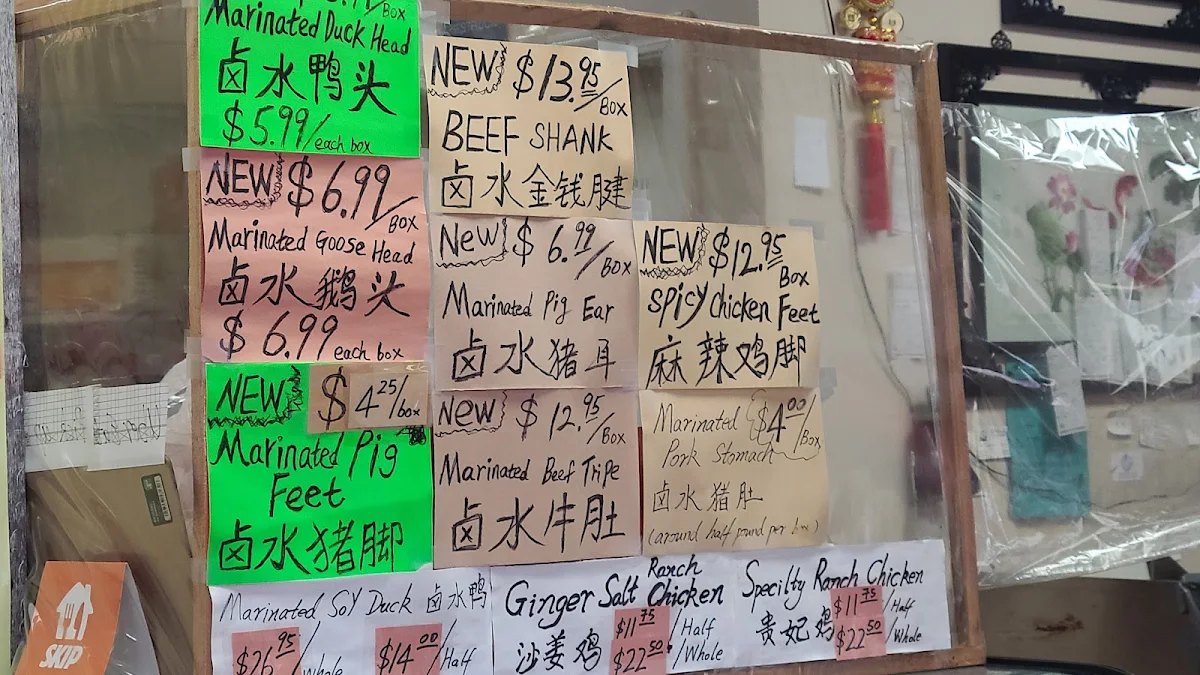 /Box
Marinated Duck Head
卤水鸭头
$5.99/each box
NEW $6.99/Box
Marinated Goose Head
卤水鹅头
$6.99 each box
NEW $4.25/box
Marinated Pig
Feet
卤水猪脚
NEW $13.95/Box
BEEF SHANK
卤水金钱腱
New $6.99/Box
Marinated Pig Ear
卤水猪耳
New $12.95/Box
Marinated Beef Tripe
卤水牛肚
NEW $12.95 Box
Spicy Chicken Feet
麻辣鸡脚
Marinated $4.00/Box
Pork Stomach
卤水猪肚
(around half pound per box)
Marinated Soy Duck 卤水鸭
$26.95/Whole $14.00/Half
Ginger Salt Ranch Chicken
沙姜鸡 $11.75/Half
$22.50/Whole
Specilty Ranch Chicken
贵妃鸡 $11.75/Half
$22.50/Whole
SKIP